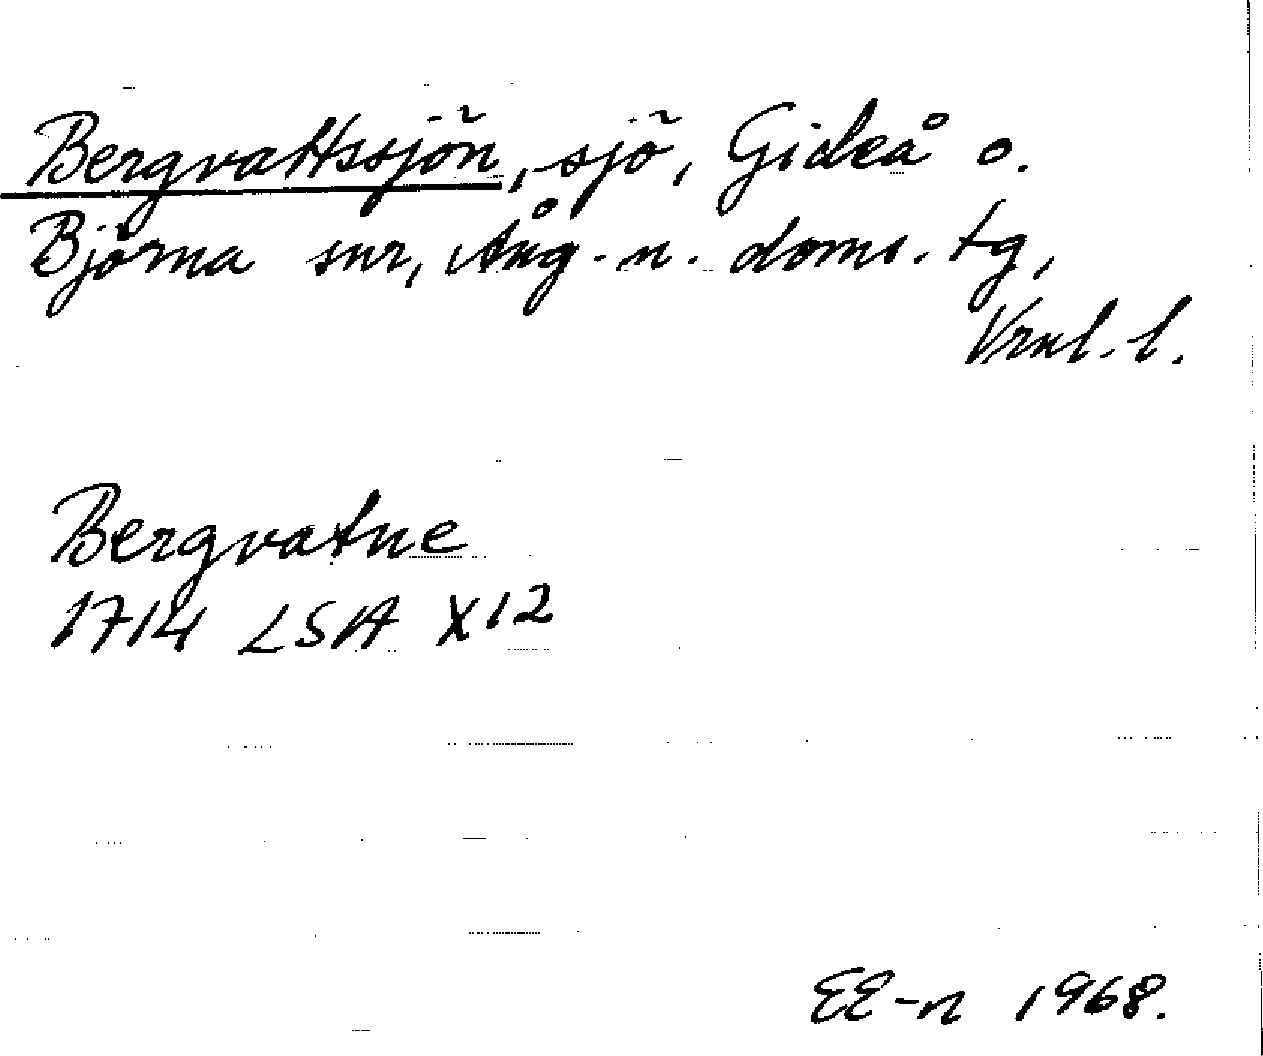 Bergvattssjön, sjö, Gideå o.
Björna snr, Ång.-n. doms. tg,
Vrnl. l.
Bergvatne
1714 LSA X12
EE-n 1968.